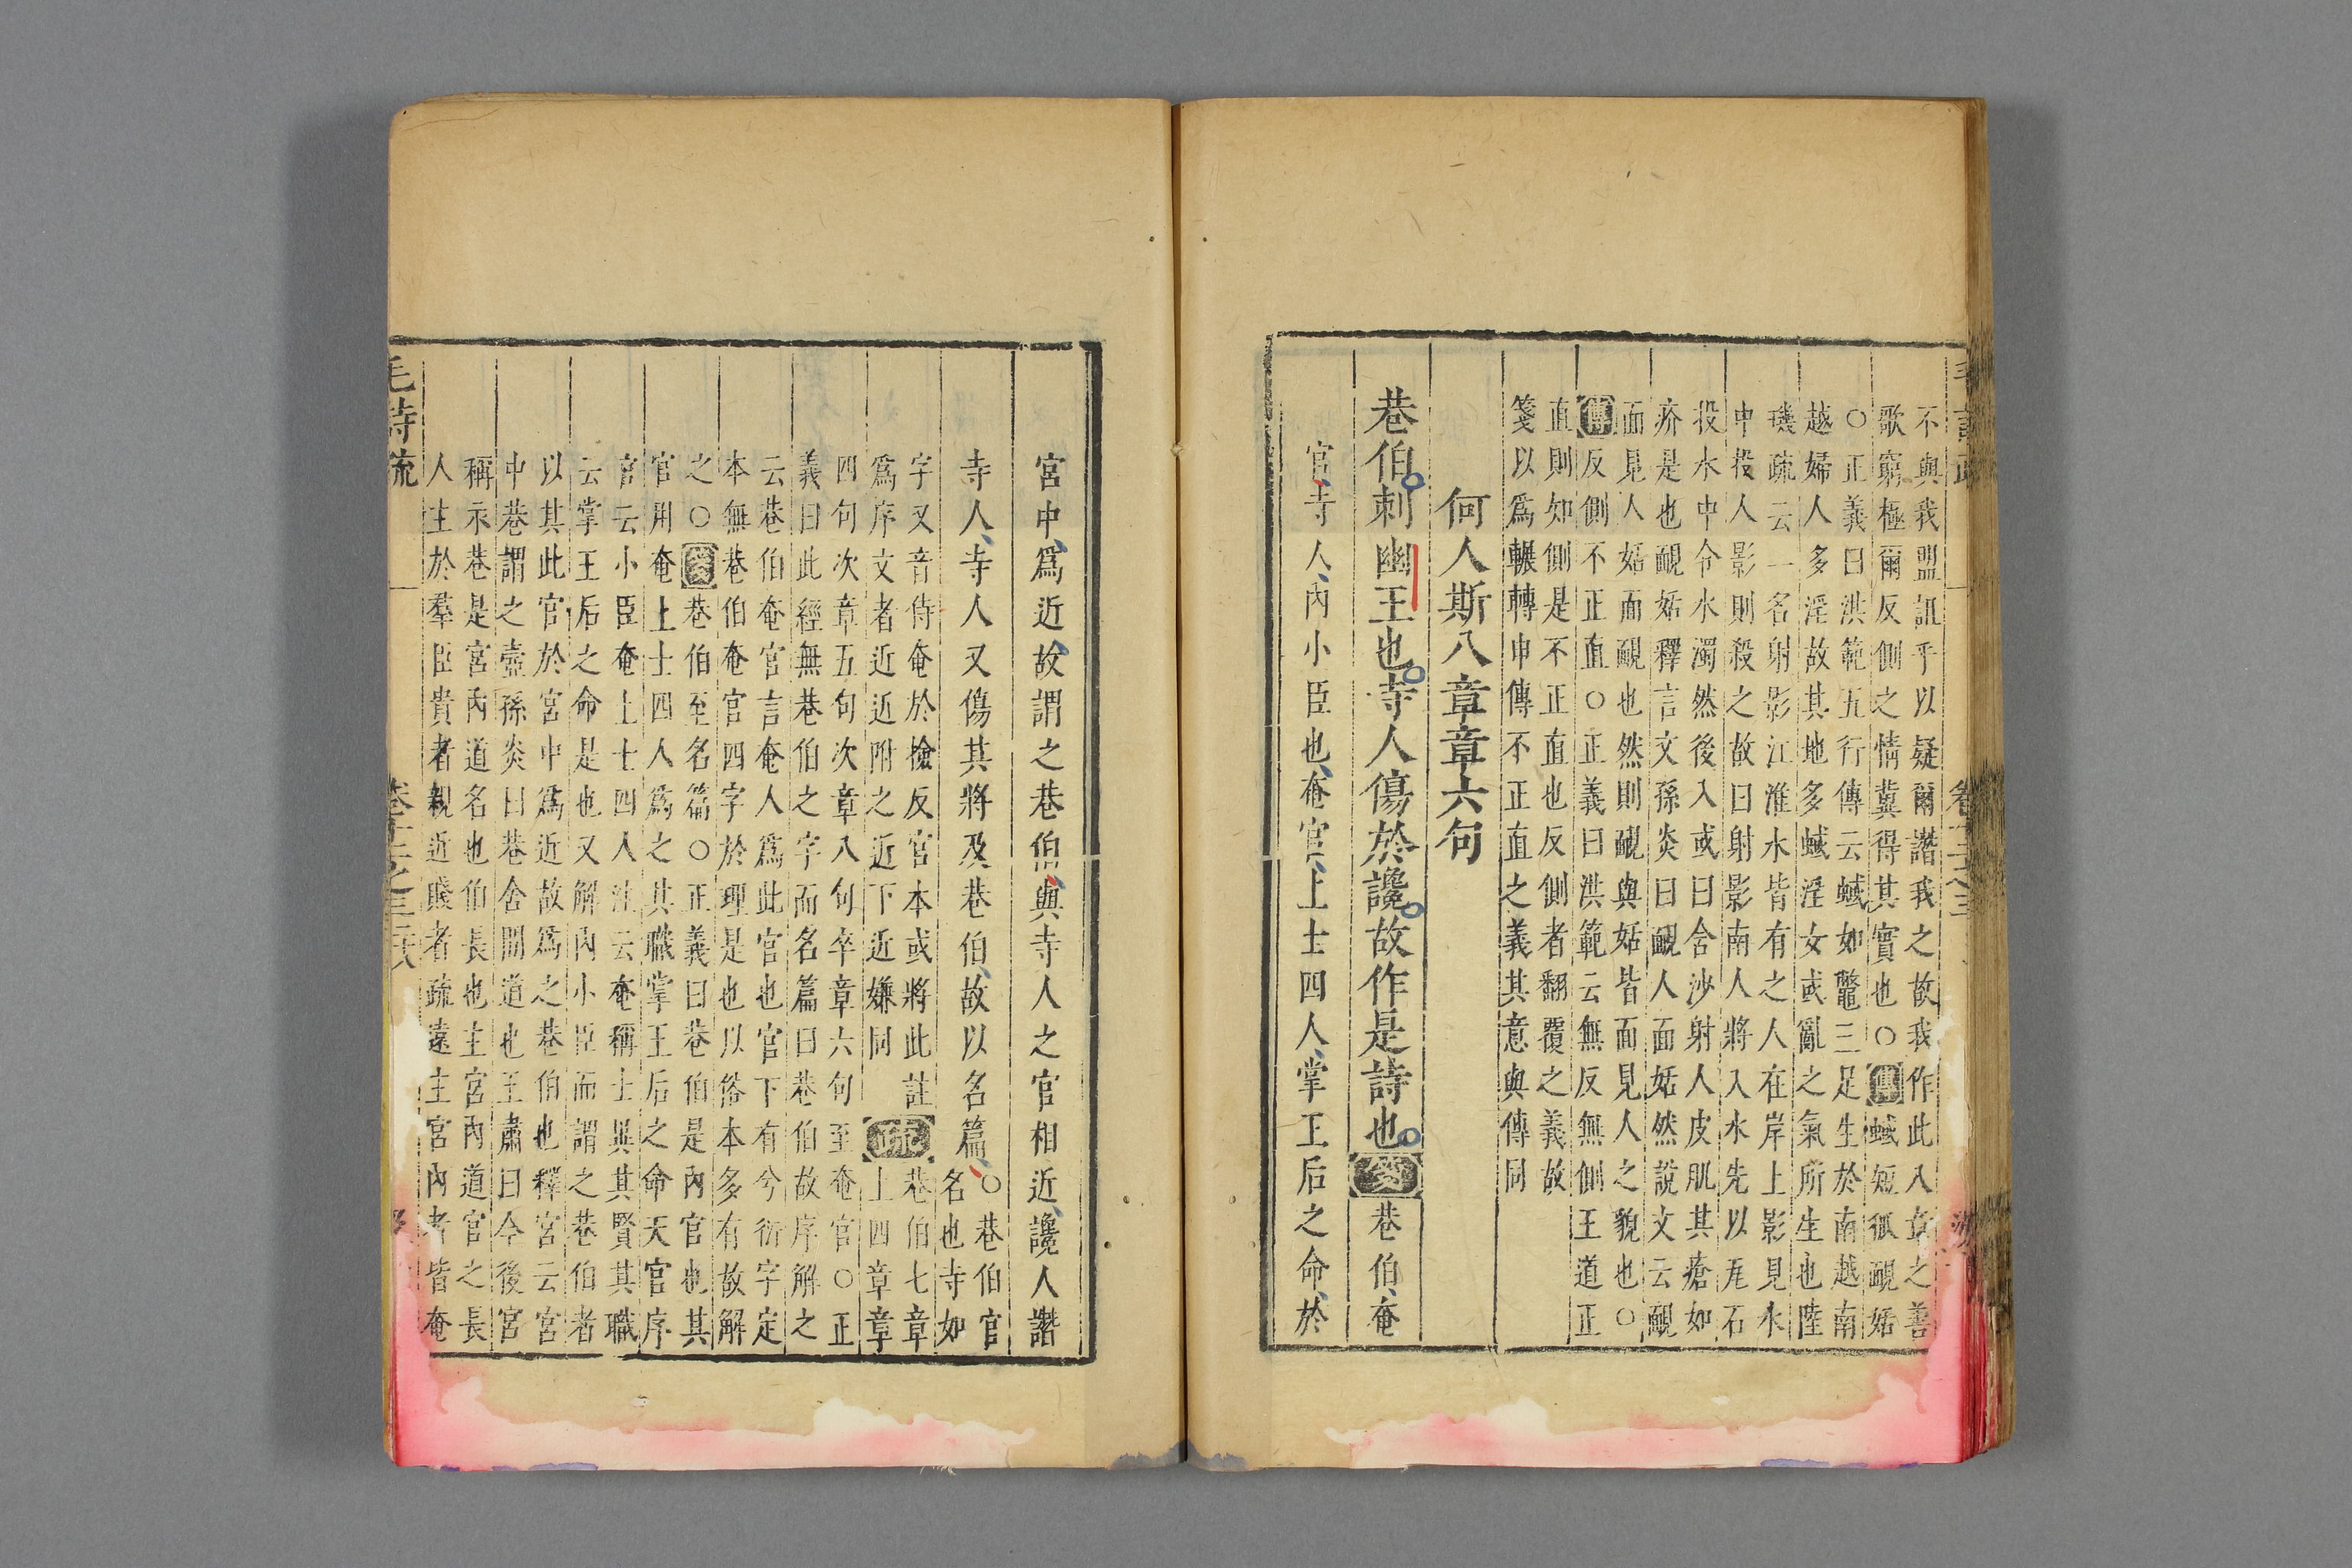 不與我盟詛乎以疑爾譖我之故我作此八章之善
歌窮極爾反側之情冀得其實也○傳蜮短狐靦姡
○正義曰洪範五行傳云蜮如鼈三足生於南越南
越婦人多淫故其地多蜮淫女或亂之氣所生也陸
璣疏云一名射影江淮水皆有之人在岸上影見水
中投人影則殺之故曰射影南人將入水先以瓦石
投水中令水濁然後入或曰含沙射人皮肌其瘡如
疥是也靦姡釋言文孫炎曰靦人面姡然說文云靦
面見人姡面靦也然則靦與姡皆面見人之貌也○
傳反側不正直○正義曰洪範云無反無側王道正
直則知側是不正直也反側者翻覆之義故
箋以為輾轉申傳不正直之義其意與傳同
何人斯八章章六句
巷伯刺幽王也寺人傷於讒故作是詩也箋巷伯奄
官寺人內小臣也奄官上士四人掌王后之命於
宮中爲近故謂之巷伯與寺人之官相近讒人譖
寺人寺人又傷其將及巷伯故以名篇○巷伯官
名也寺如
字又音侍奄於檢反官本或將此註
爲序文者近近附之近下近嫌同疏巷伯七章
上四章章
四句次章五句次章八句卒章六句至奄官○正
義曰此經無巷伯之字而名篇曰巷伯故序解之
云巷伯奄官言奄人爲此官也官下有兮衍字定
本無巷伯奄官四字於理是也以俗本多有故解
之○箋巷伯至名篇○正義曰巷伯是內官也其
官用奄上士四人爲之其職掌王后之命天官序
官云小臣奄上士四人注云奄稱士異其賢其職
云掌王后之命是也又解內小臣而謂之巷伯者
以其此官於宮中爲近故爲之巷伯也釋宮云宮
中巷謂之壼孫炎曰巷舍間道也王肅曰今後宮
稱示巷是宮內道名也伯長也主宮內道官之長
人主於羣臣貴者親近賤者疏遠主宮內者皆奄
毛詩疏
卷十二之三